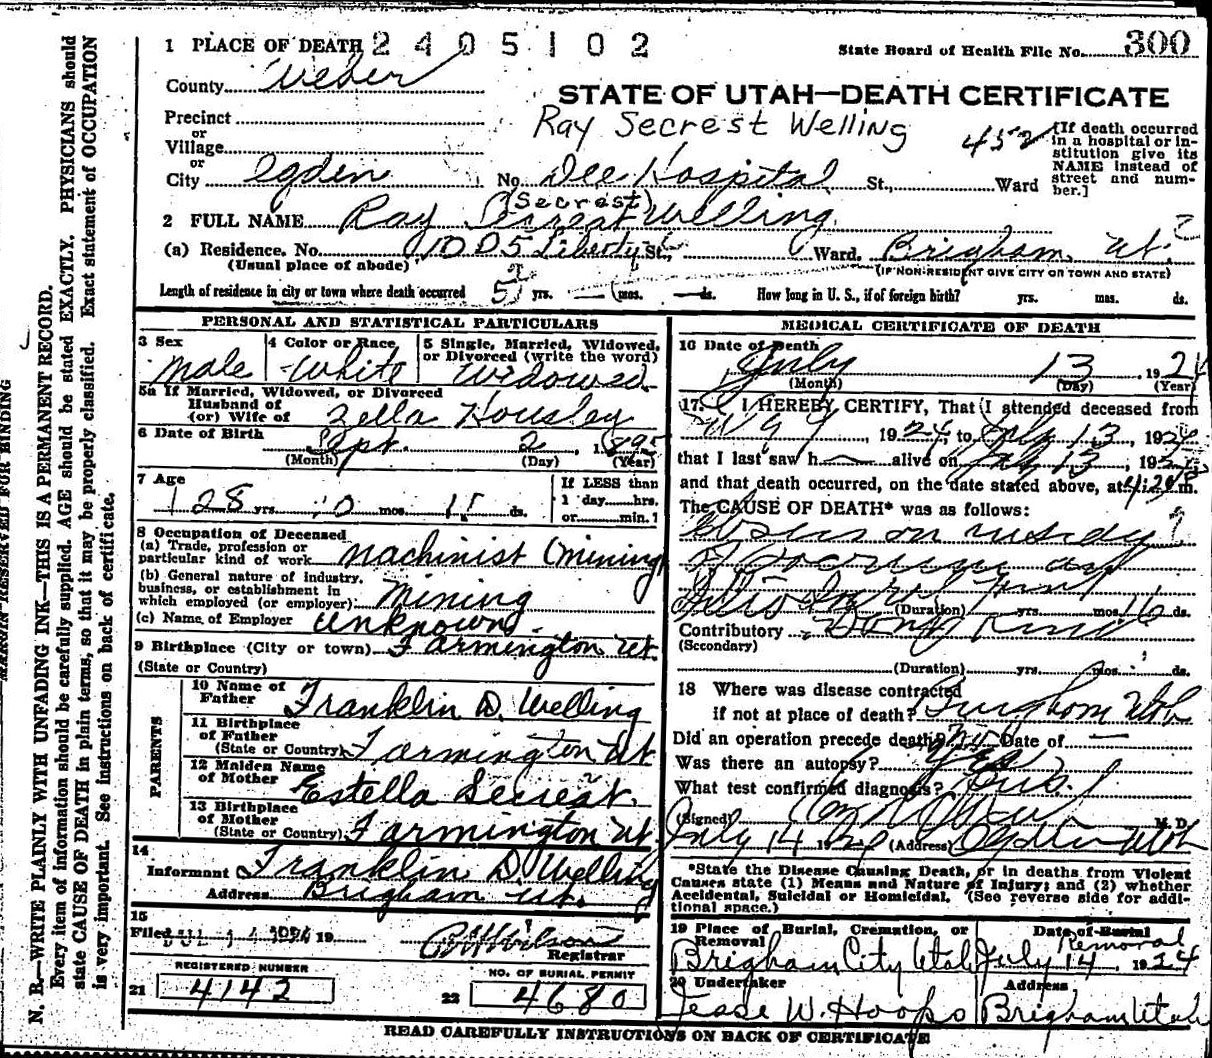 1 PLACE OF DEATH 2 4 0 5 1 0 2
State Board of Health File No. 300
County Weber
STATE OF UTAH—DEATH CERTIFICATE
Precinct
or
Village
Ray Secrest Welling
452
[If death occurred in a hospital or institution give its NAME instead of street and number.]
or
City Ogden No. Dee Hospital St., Ward
(Secrest)
2 FULL NAME Ray Welling
(a) Residence. No. 1005 Liberty St., Ward. Brigham, Ut. ?
(Usual place of abode) (IF NON-RESIDENT GIVE CITY OR TOWN AND STATE)
Length of residence in city or town where death occurred 5 yrs. — mos. — ds. How long in U. S., if of foreign birth? yrs. mos. ds.
PERSONAL AND STATISTICAL PARTICULARS
3 Sex 4 Color or Race 5 Single, Married, Widowed, or Divorced (write the word)
Male White Widowed
5a If Married, Widowed, or Divorced
Husband of
(or) Wife of Zella Housley
6 Date of Birth
Sept. 2, 1895
(Month) (Day) (Year)
7 Age If LESS than
28 yrs. 10 mos. 11 ds. 1 day hrs.
or min.?
8 Occupation of Deceased
(a) Trade, profession or
particular kind of work Machinist (Mining)
(b) General nature of industry,
business, or establishment in
which employed (or employer) Mining
(c) Name of Employer Unknown
9 Birthplace (City or town) Farmington Ut.
(State or Country)
PARENTS
10 Name of
Father Franklin D. Welling
11 Birthplace
of Father
(State or Country) Farmington Ut
12 Maiden Name
of Mother Estella Secrest.
13 Birthplace
of Mother
(State or Country) Farmington Ut
14
Informant Franklin D. Welling
Address Brigham Ut.
15
Filed JUL 14 1924 19 Wilson
Registrar
REGISTERED NUMBER NO. OF BURIAL PERMIT
21 4142 22 4680
MEDICAL CERTIFICATE OF DEATH
16 Date of Death
July 13 1924
(Month) (Day) (Year)
17. I HEREBY CERTIFY, That I attended deceased from
1924, to July 13, 1924
that I last saw h alive on July 13, 1924
and that death occurred, on the date stated above, at m.
The CAUSE OF DEATH* was as follows:
(Duration) yrs. mos. 16 ds.
Contributory
(Secondary)
(Duration) yrs. mos. ds.
18 Where was disease contracted
if not at place of death? Brigham Utah
Did an operation precede death? No Date of —
Was there an autopsy? Yes
What test confirmed diagnosis?
(Signed) M. D.
July 14 1924 (Address) Ogden Utah
*State the Disease Causing Death, or in deaths from Violent
Causes state (1) Means and Nature of Injury; and (2) whether
Accidental, Suicidal or Homicidal. (See reverse side for additional space.)
19 Place of Burial, Cremation, or Removal Date of Burial
Removal
Brigham City Utah July 14, 1924
20 Undertaker Address
W. Hoops Brigham Utah
READ CAREFULLY INSTRUCTIONS ON BACK OF CERTIFICATE
MARGIN RESERVED FOR BINDING
N. B.—WRITE PLAINLY WITH UNFADING INK—THIS IS A PERMANENT RECORD.
Every item of information should be carefully supplied. AGE should be stated EXACTLY. PHYSICIANS should
state CAUSE OF DEATH in plain terms, so that it may be properly classified. Exact statement of OCCUPATION
is very important. See instructions on back of certificate.